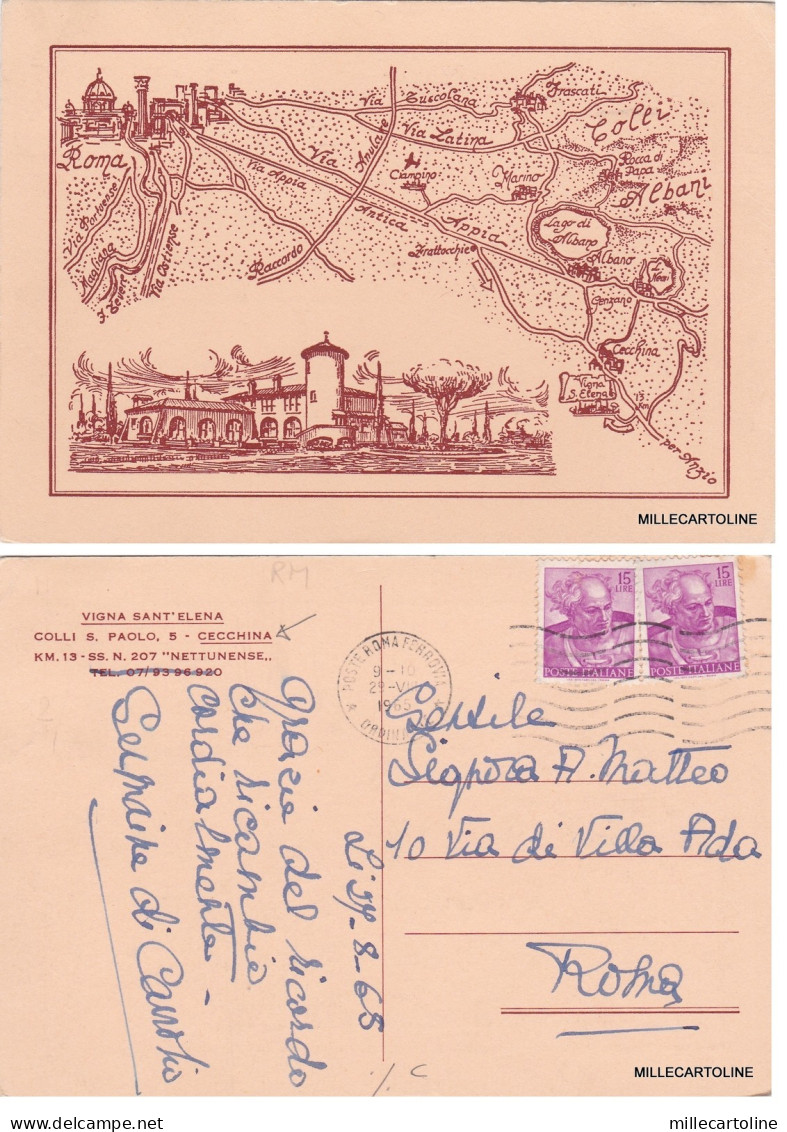 Roma
Via Portuense
Magliana
F. Tevere
Via Ostiense
Via Appia
Via
Antica
Appia
Raccordo
Anulare
Via Tuscolana
Via Latina
Ciampino
Frattocchie
Frascati
Marino
Colli
Albani
Rocca di
Papa
Lago di
Albano
Albano
Nemi
Genzano
Cecchina
Vigna
S. Elena
13
Km
per Anzio
MILLECARTOLINE
RM
VIGNA SANT'ELENA
COLLI S. PAOLO, 5 - CECCHINA
KM. 13 - SS. N. 207 "NETTUNENSE,,
TEL. 07/93 96 920
POSTE ROMA FERROVIA
9-10
1965
15
LIRE
POSTE ITALIANE
15
LIRE
POSTE ITALIANE
Gentile
Signora A. Matteo
10 Via di Villa Ada
Roma
Grazie del ricordo
che ricambio
cordialmente -
MILLECARTOLINE
www.delcampe.net
millecartoline